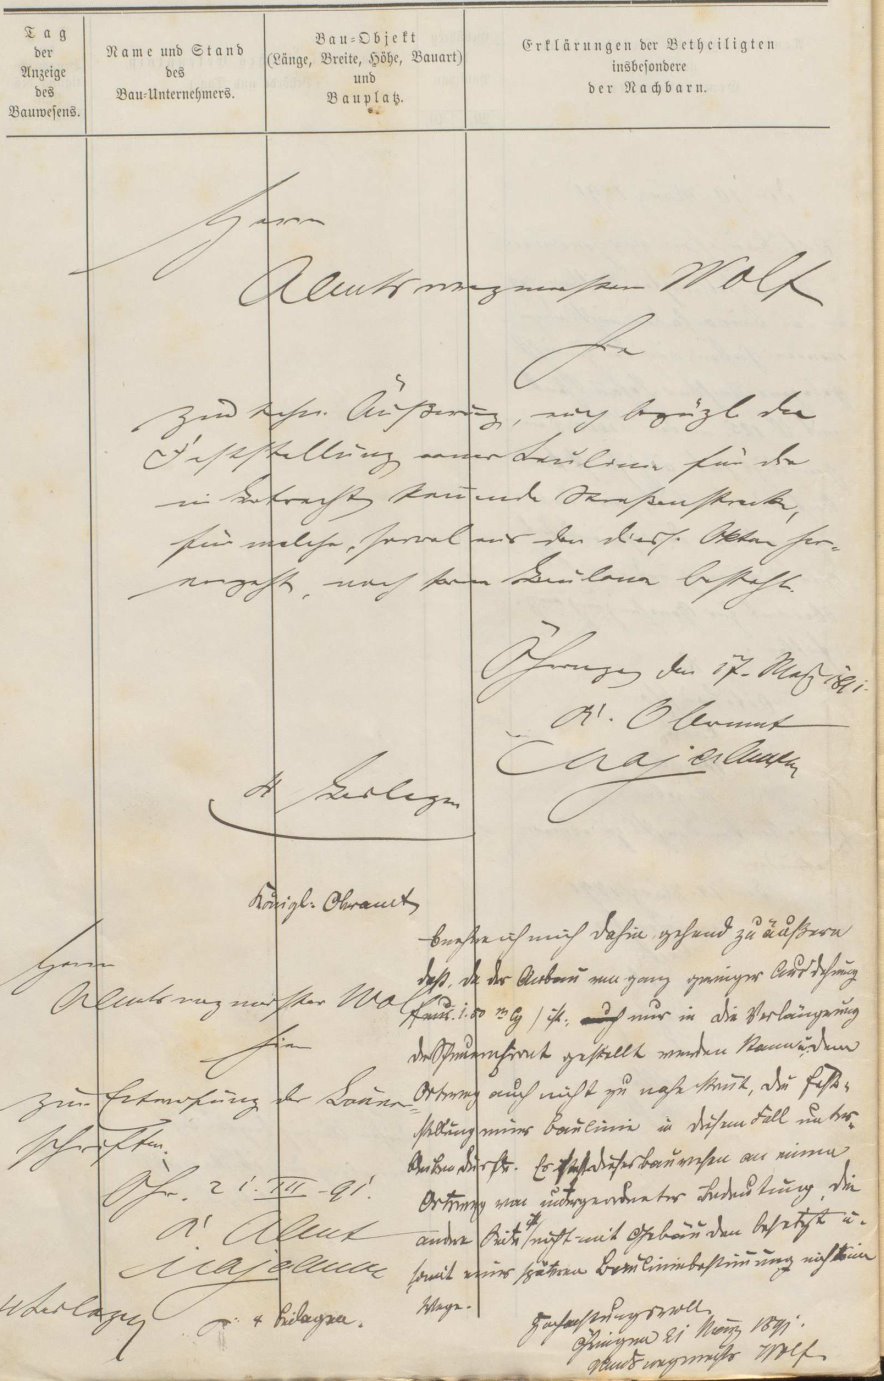 Tag
der
Anzeige
des
Bauwesens.
Name und Stand
des
Bau-Unternehmers.
Bau-Objekt
(Länge, Breite, Höhe, Bauart)
und
Bauplatz.
Erklärungen der Betheiligten
insbesondere
der Nachbarn.
Herrn
Amtswegmeister Wolf
hier
zur Äußerung, auch bezügl. der
Feststellung einer Baulinie für die
in Betracht kommende Straßenstrecke,
für welche, soviel aus den diess. Akten her-
vorgeht, noch keine Baulinie besteht.
Öhringen den 17. März 1891.
K. Oberamt
4 Beilagen
Königl. Oberamt
beehre ich mich dahin gehend zu äußern
daß, da der Anbau von ganz geringer Ausdehnung
ist, nur in die Verlängerung
der gestellt werden kann u. dem
Ortsweg auch nicht zu nahe kommt, die Fest-
stellung einer Baulinie in diesem Fall unter-
bleiben dürfte. Es dieses Bauwesen an einem
Ortsweg von untergeordneter Bedeutung, die
andere Seite ist nicht mit Gebäuden besetzt u.
somit einer späteren Baulinienbestimmung nichts im
Wege.
Hochachtungsvoll
Öhringen 21 März 1891.
Amtswegmeister Wolf
Herrn
Amtswegmeister Wolf
hier
zur Entwerfung der Bauvor-
schriften.
Öhr. 21. III. 91.
K. Oberamt
4 Beilagen
4 Beilagen.